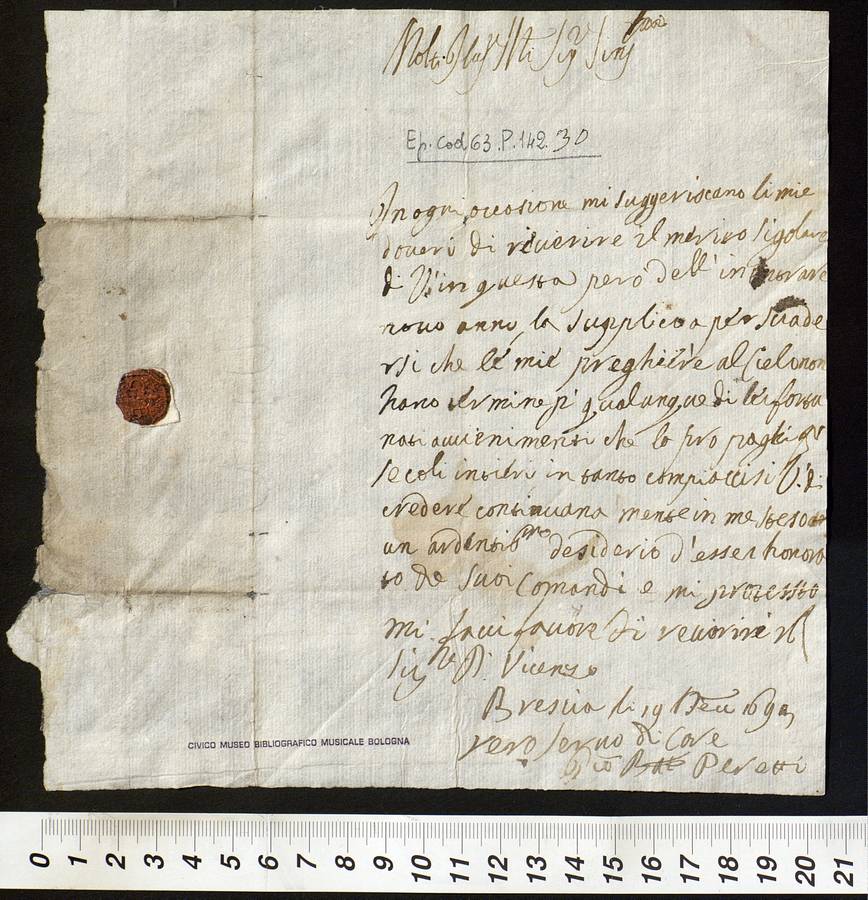 Molto Ill.re Sig.r Sig.r
Ep. Cod 63. P. 142. 30
In ogni occasione mi suggeriscano li miei
doueri di riuerire il merito
di V. in questa però dell'
nouo anno, la supplico a persuade
rsi che le mie preghiere al Cielo non
hano termine p qualunque di le fortu
nati auuenimenti che lo
secoli intieri in tanto compiaccisi V. di
credere continuana mente in me
un ardentis.mo desiderio d'esser honora
to de suoi Comandi e mi protesto
mi facci fauore di reuerire il
Sig.re D. Vicenzo
Brescia li 19 169
vero seruo di Core
Gio Batt Peretti
CIVICO MUSEO BIBLIOGRAFICO MUSICALE BOLOGNA
0 1 2 3 4 5 6 7 8 9 10 11 12 13 14 15 16 17 18 19 20 21